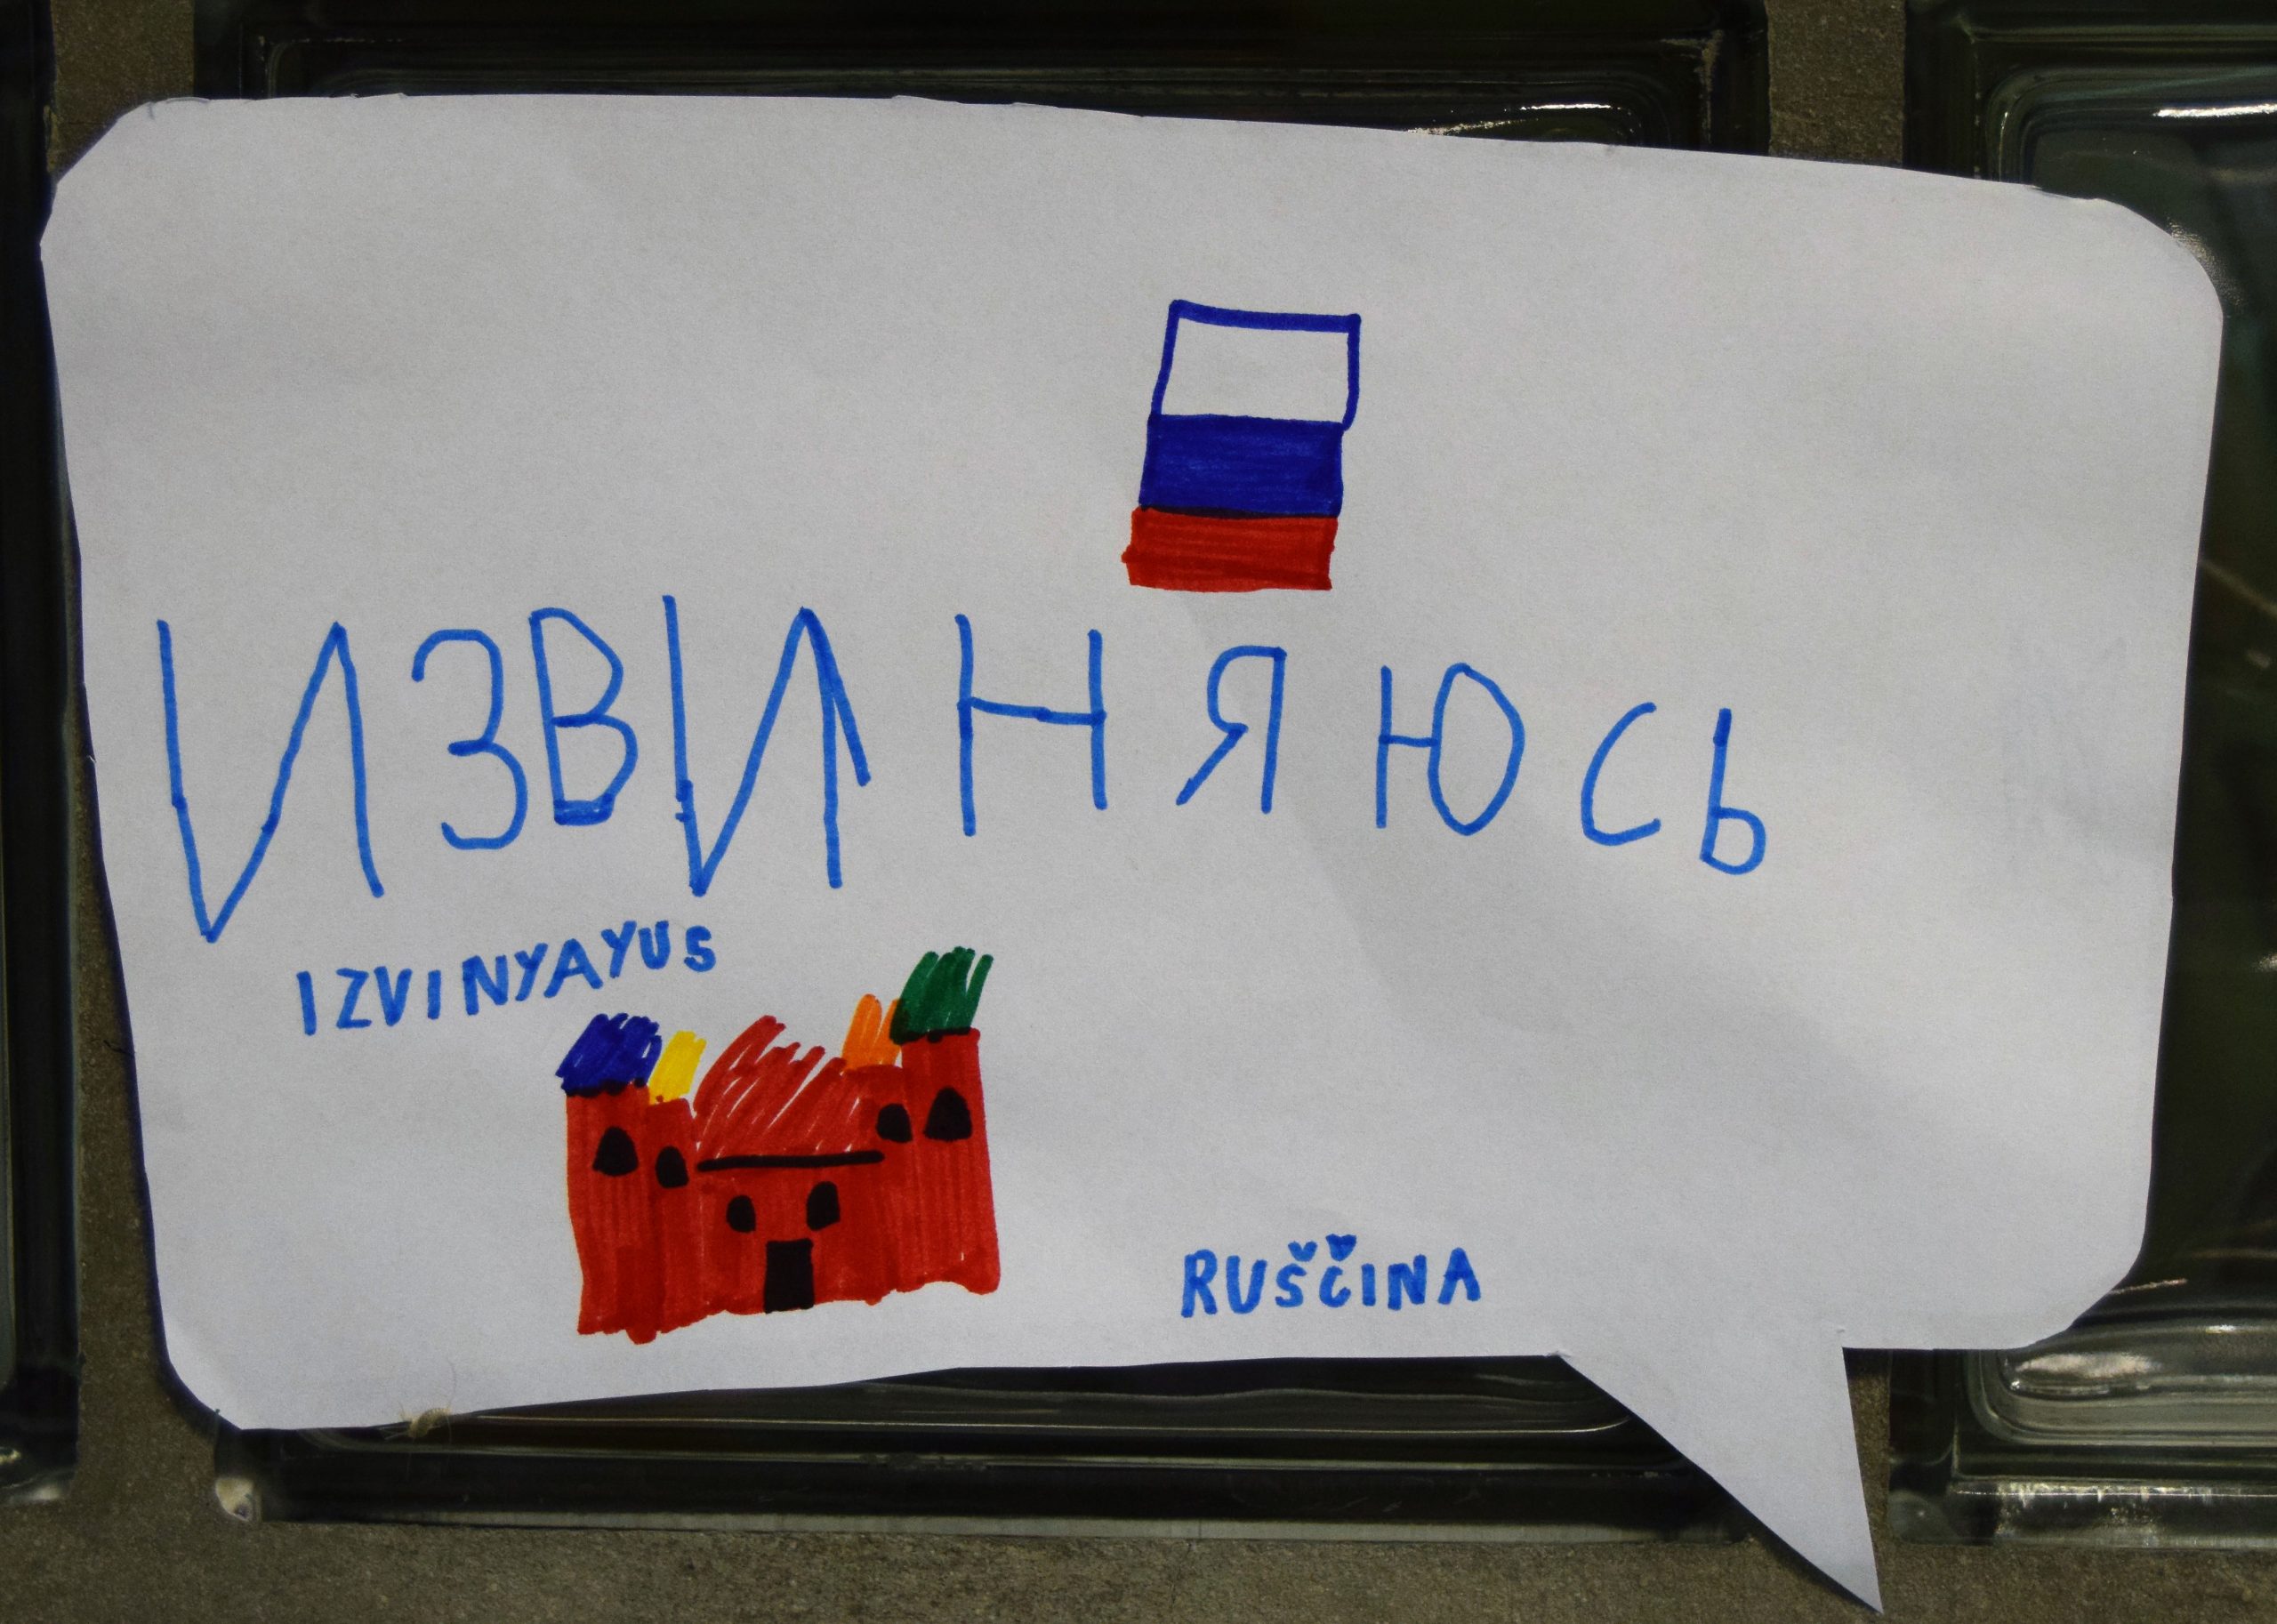 ИЗВИНЯЮСЬ
IZVINYAYUS
RUŠČINA